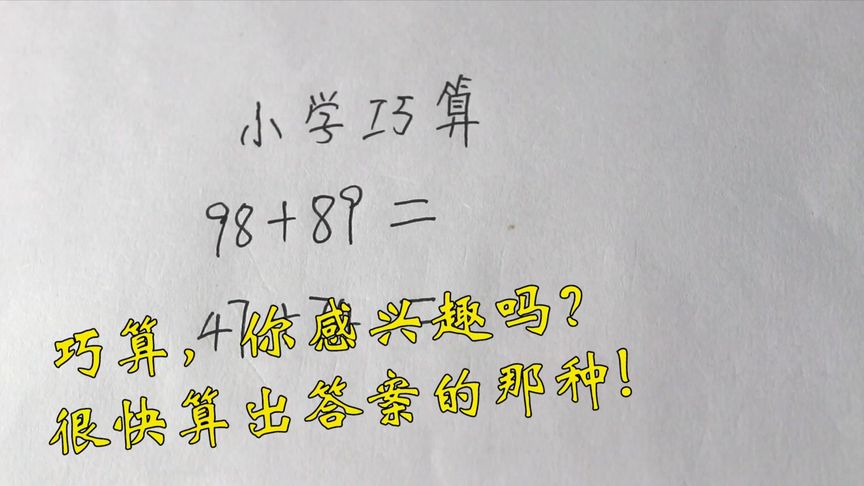 小学巧算
98+89=
47+74=
巧算,你感兴趣吗?
很快算出答案的那种!